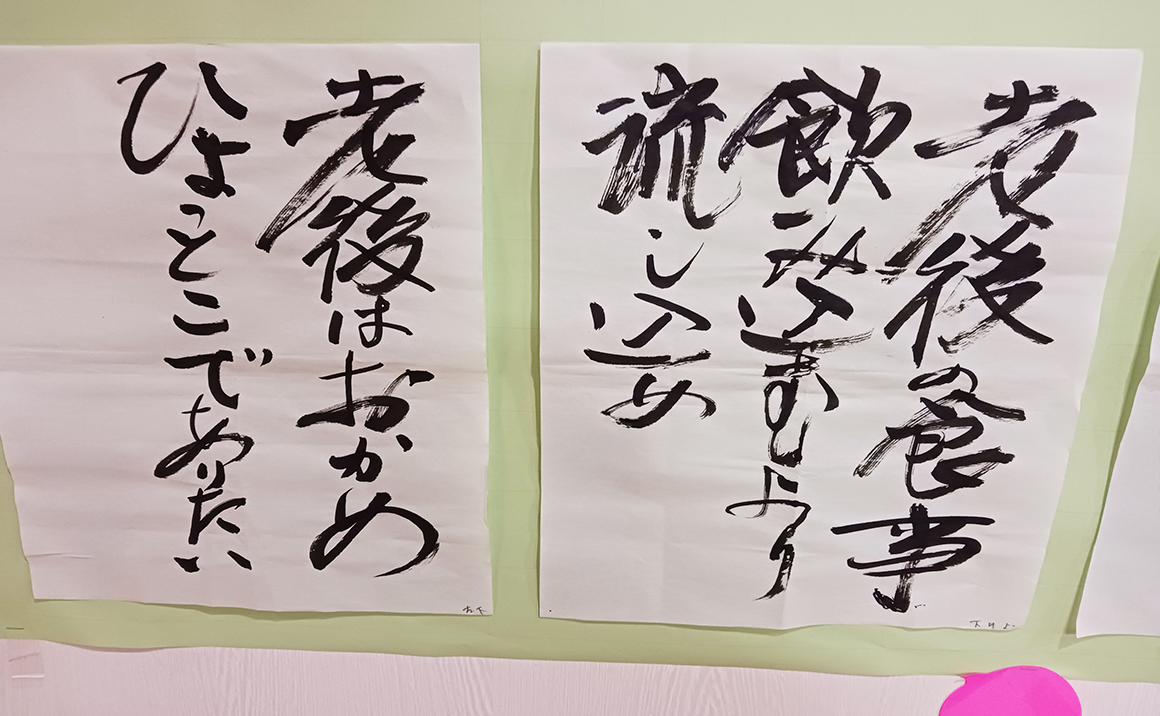 老後の食事
飲み込むより
流し込め
老後はおかめ
ひょっとこでありたい